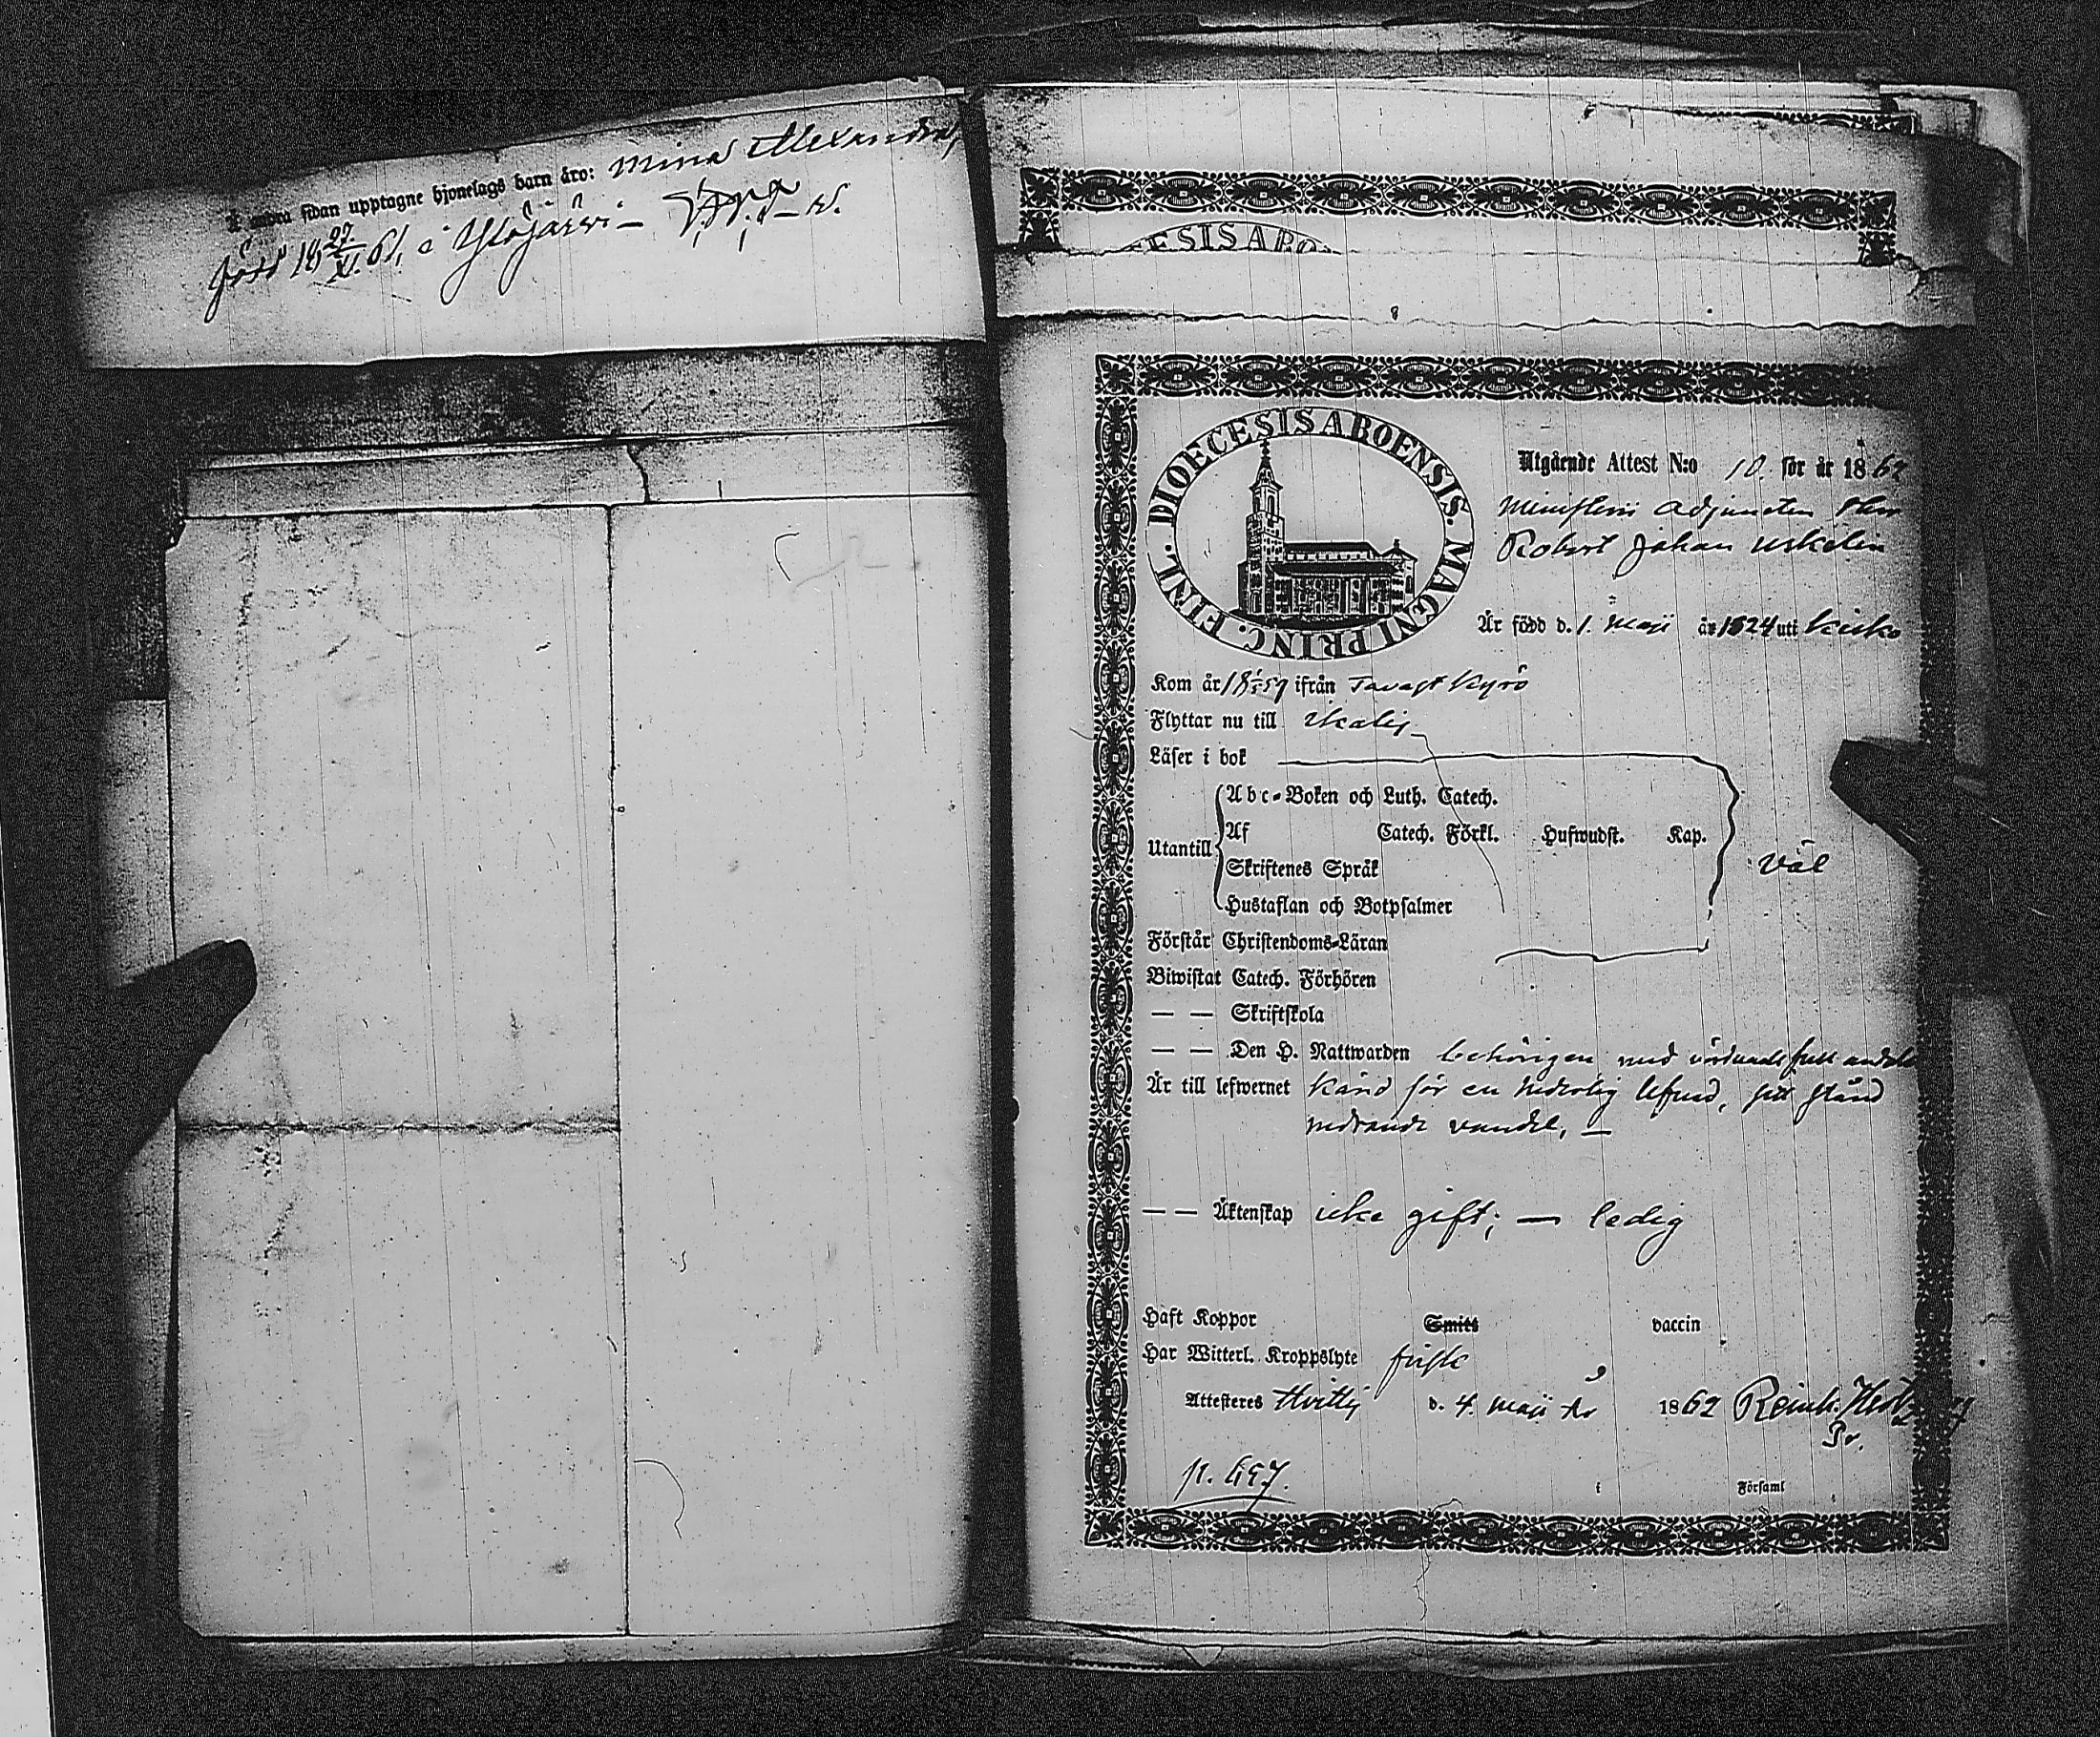 andra sidan upptagne hjonelags barn äro: Mina Alexandra,
född 18 27/XI 61, i Ylöjärvi –
ESIS ABO
DIOECESIS ABOENSIS. MAGNI PRINC. FINL.
Utgående Attest N:o 10. för år 1862
Ministerii Adjuncten Herr
Robert Johan Uskelin
Är född d. 1. Maji år 1824 uti Kisko
Kom år 1859 ifrån Tavast Kyrö
Flyttar nu till Ikalis
Läser i bok
Abc-Boken och Luth. Catech.
Af Catech. Förkl. Hufwudst. Kap.
Utantill
väl
Skriftenes Språk
Hustaflan och Botpsalmer
Förstår Christendoms-Läran
Biwistat Catech. Förhören
— — Skriftskola
— — Den H. Nattwarden behörigen med vördnadsfull andakt
Är till lefwernet känd för en hederlig lefnad, sitt stånd
hedrande vandel, —
— — Äktenskap icke gift; — ledig
Haft Koppor Smitt vaccin
Har Witterl. Kroppslyte frisk
Attesteras Hvittis d. 4. Maji år 1862 Reinh.
Pr.
p. 697.
i Församl